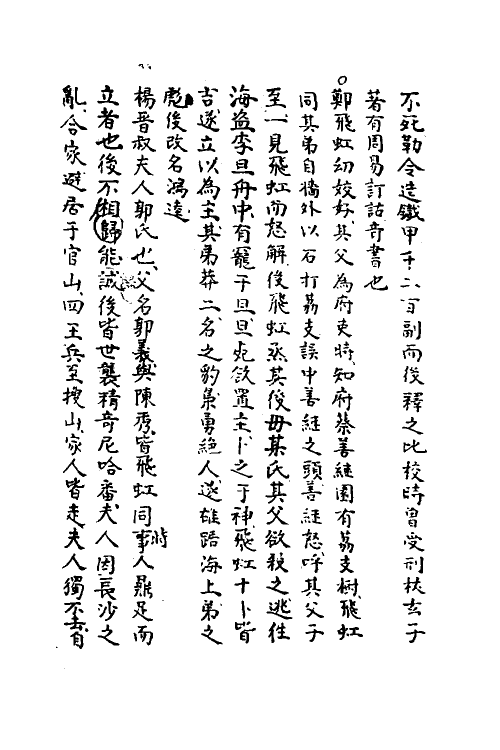 不死勒令造鐵甲千二百副而後釋之比校時曾受刑枝玄子
著有周易訂詁奇書也
鄭飛虹幼姣好其父為府吏時知府蔡善継園有荔支樹飛虹
同其弟自墻外以石打荔支誤中善継之頭善継怒呼其父子
至一見飛虹而怒解後飛虹烝其後母某氏其父欲殺之逃往
海盗李旦舟中有寵于旦旦死欲置主卜之于神飛虹十卜皆
吉遂立以為主其弟莽二名之豹梟勇絕人遂雄踞海上弟之
彪後改名鴻逵
楊晋叔夫人郭氏也父名郭義與陳秀皆飛虹同時事人鼎足而
立者也後不相能歸誠後皆世襲精奇尼哈番夫人因長沙之
亂合家避居于官山四王兵至搜山家人皆走夫人獨不去自